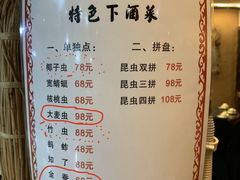 特色下酒菜
一、单独点：
椰子虫 78元
宽蜻蜓 68元
核桃虫 68元
大麦虫 98元
竹虫 88元
蚂蚱 48元
知了
金蚕
二、拼盘：
昆虫双拼 78元
昆虫三拼 98元
昆虫四拼 108元